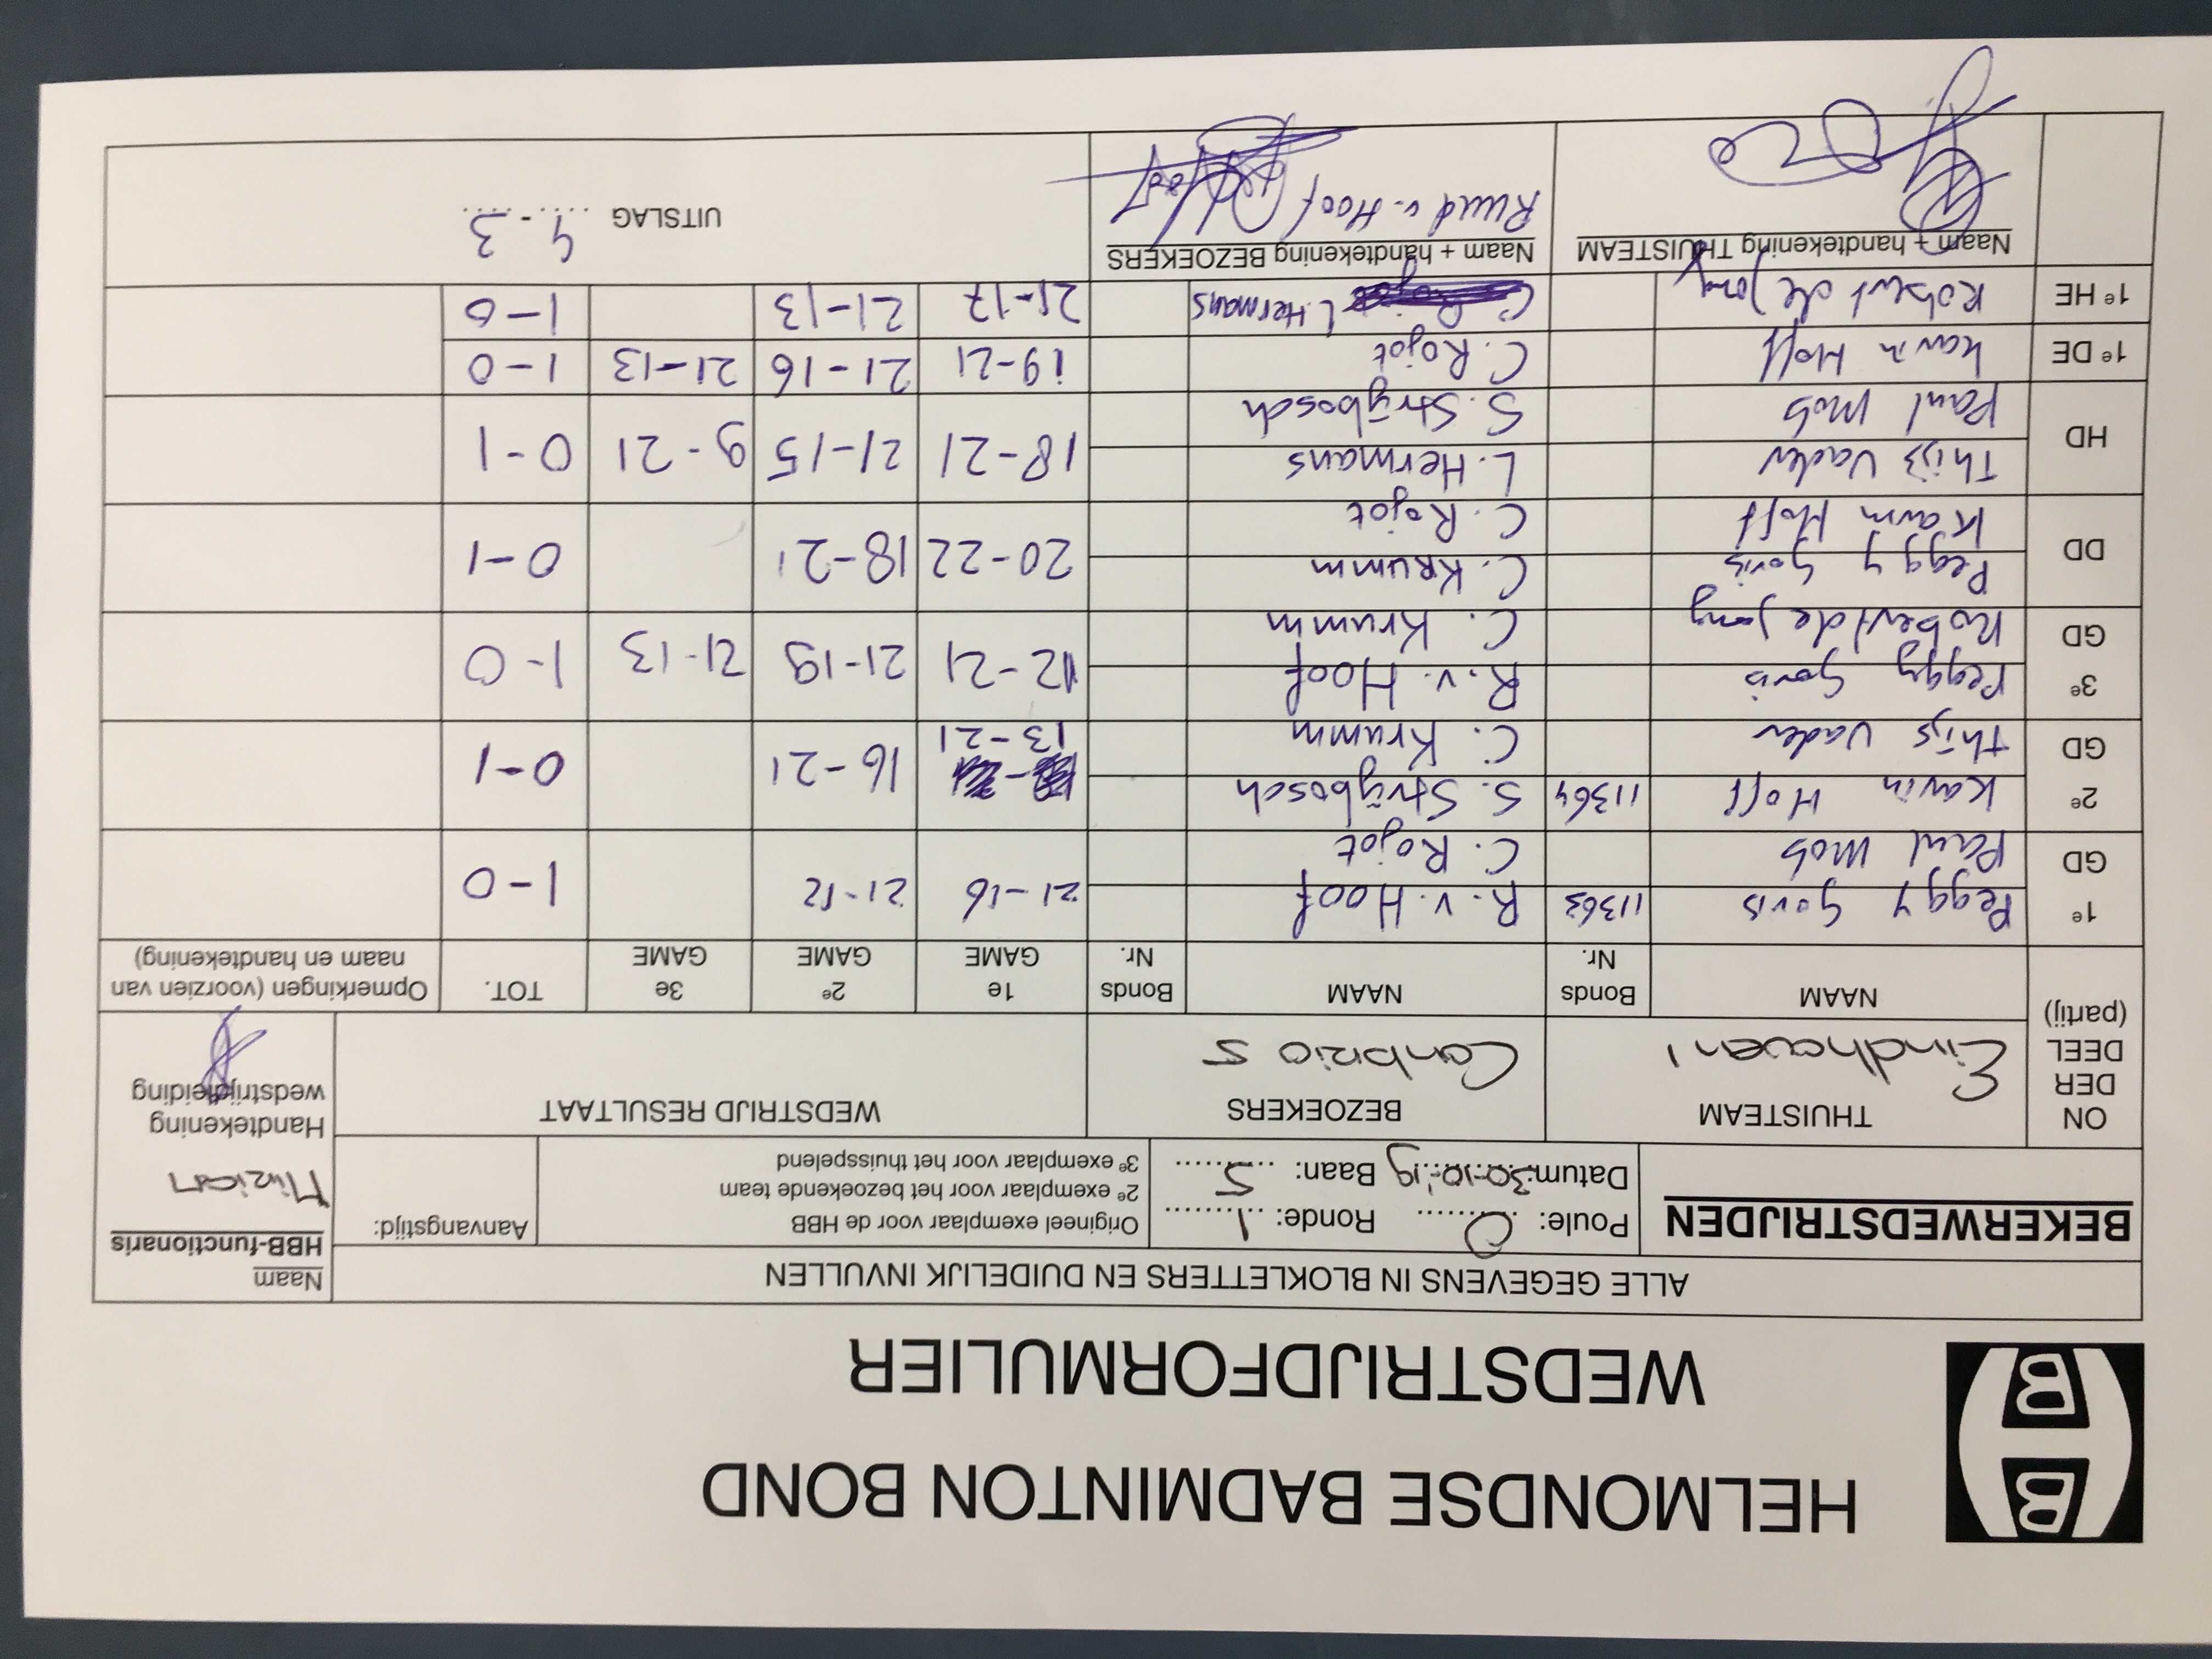 HELMONDSE BADMINTON BOND
WEDSTRIJDFORMULIER
BB
ALLE GEGEVENS IN BLOKLETTERS EN DUIDELIJK INVULLEN
Naam
HBB-functionaris
BEKERWEDSTRIJDEN
Poule: C Ronde: 1
Datum: 30-10-'19 Baan: 5
Origineel exemplaar voor de HBB
2e exemplaar voor het bezoekende team
3e exemplaar voor het thuisspelend
Aanvangstijd:
Handtekening
wedstrijdleiding
ON
DER
DEEL
(partij)
THUISTEAM
Eindhoven 1
BEZOEKERS
Conbrio 5
WEDSTRIJD RESULTAAT
NAAM Bonds Nr. NAAM Bonds Nr. 1e GAME 2e GAME 3e GAME TOT. Opmerkingen (voorzien van naam en handtekening)
1e Peggy Goris 11363 R. v. Hoof 21-16 21-12 1-0
GD Paul Mob C. Rojot
2e Karin Hoff 11364 S. Strijbosch 13-21 16-21 0-1
GD Thijs Vader C. Krumm
3e Peggy Goris R. v. Hoof 12-21 21-19 21-13 1-0
GD Robert de Jong C. Krumm
DD Peggy Goris C. Krumm 20-22 18-21 0-1
Karin Hoff C. Rojot
HD Thijs Vader L. Hermans 18-21 21-15 9-21 0-1
Paul Mob S. Strijbosch
1e DE Karin Hoff C. Rojot 19-21 21-16 21-13 1-0
1e HE Robert de Jong L. Hermans 21-17 21-13 1-0
Naam + handtekening THUISTEAM
Naam + handtekening BEZOEKERS
Ruud v. Hoof
UITSLAG 4-3